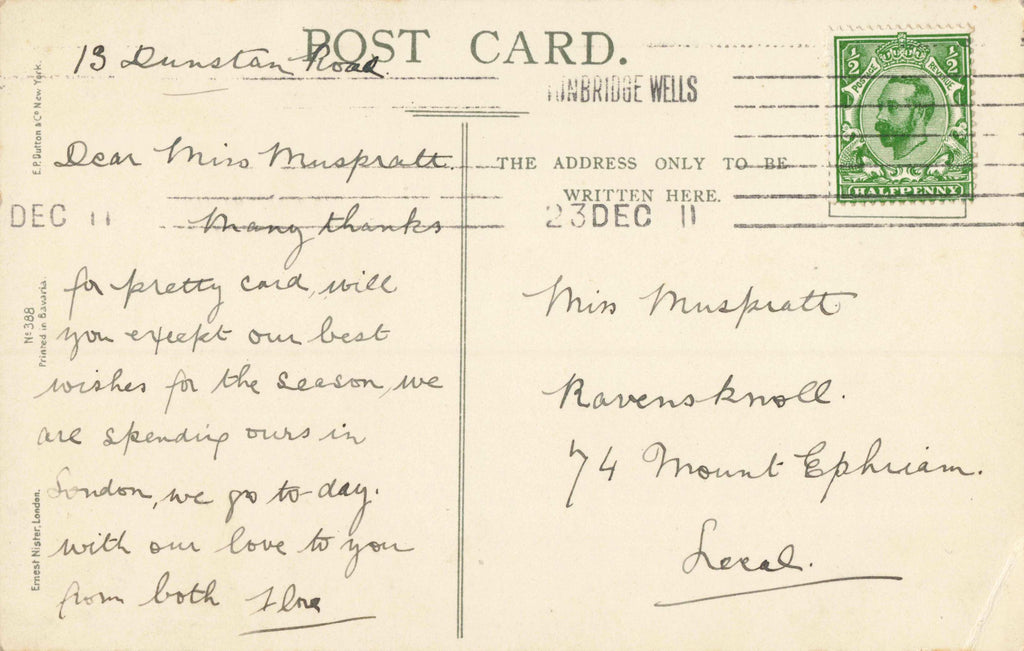 POST CARD.
13 Dunstan Road
TUNBRIDGE WELLS
1/2 1/2
POSTAGE REVENUE
HALFPENNY
THE ADDRESS ONLY TO BE
WRITTEN HERE.
DEC 11
23DEC 11
Dear Miss Muspratt.
Many thanks
for pretty card, will
you except our best
wishes for the season, we
are spending ours in
London, we go to-day.
with our love to you
from both Flora
Miss Muspratt
Ravensknoll.
74 Mount Ephriam.
Local.
E.P. Dutton & Co New York.
No 388
Printed in Bavaria.
Ernest Nister, London.